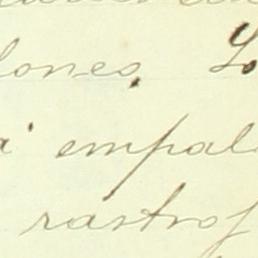 lones. Lo
a empal
rastrof